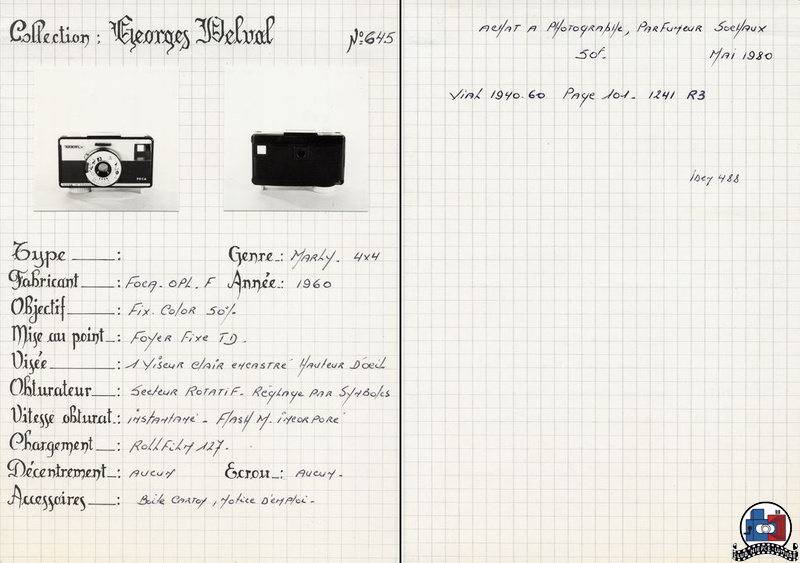 Collection : Georges Delval N°: 645
Type : Genre : Marly. 4x4
Fabricant : Foca. OPL. F Année : 1960
Objectif : Fix. Color 50%
Mise au point : Foyer Fixe TD.
Visée : 1 Viseur clair encastré Hauteur D'oeil
Obturateur : Secteur Rotatif. Réglage par Symboles
Vitesse obturat. : instantané - Flash M. incorporé
Chargement : RollFilm 127.
Décentrement : Aucun Ecrou : Aucun.
Accessoires : Boite Carton, Notice D'emploi.
Achat a Photographe, Parfumeur Sochaux
50f. Mai 1980
Vial 1940.60 Page 101. 1241 R3
idem 488